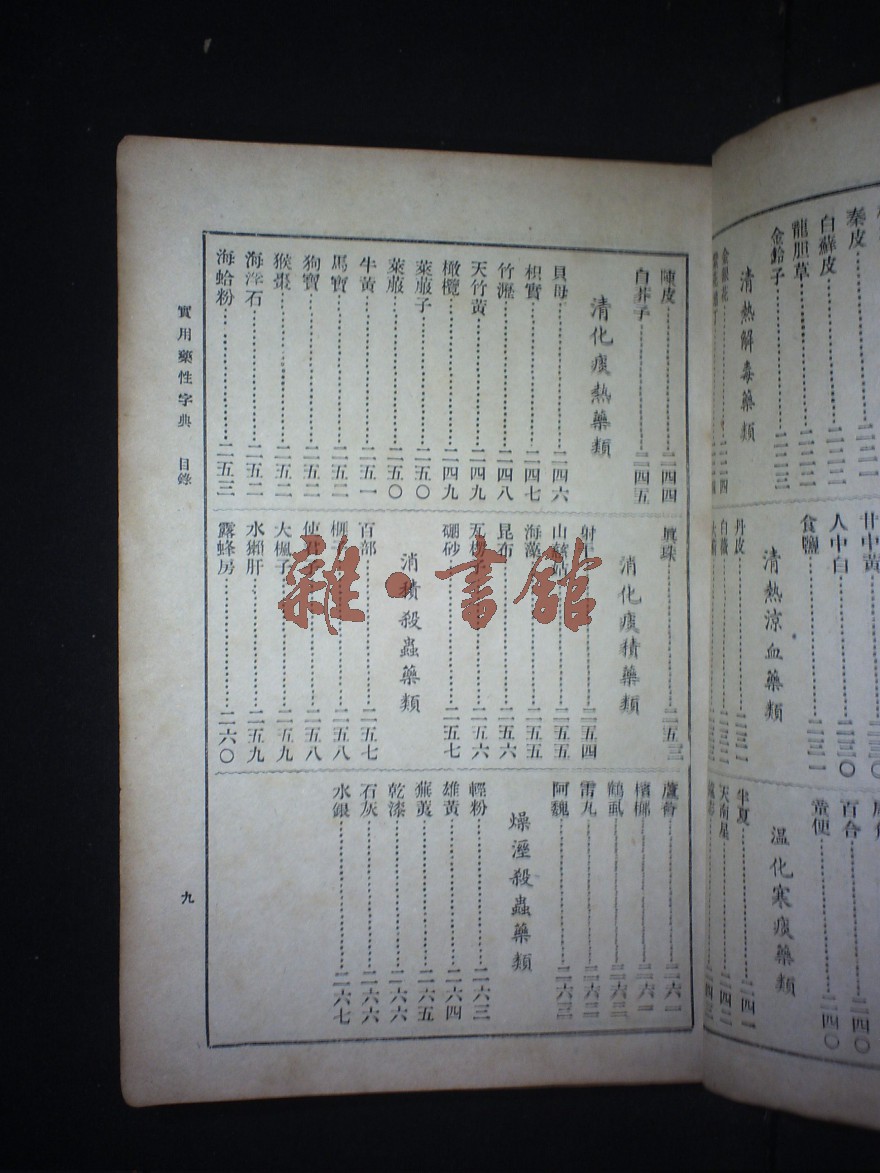 秦皮
白蘚皮……二二二
龍胆草……二二二
金鈴子……二二三
清熱解毒藥類
金銀花……二二四
人中白……二三〇
食鹽……二三一
清熱涼血藥類
丹皮……二三一
白薇……二三二
百合……二四〇
童便……二四〇
温化寒痰藥類
半夏……二四一
天南星……二四二
陳皮……二四四
白芥子……二四五
清化痰熱藥類
貝母……二四六
枳實……二四七
竹瀝……二四八
天竹黃……二四九
橄欖……二四九
萊菔子……二五〇
萊菔……二五〇
牛黃……二五一
馬寶……二五二
狗寶……二五二
猴棗……二五二
海浮石……二五二
海蛤粉……二五三
眞珠……二五三
消化痰積藥類
射干……二五四
山慈姑……二五五
海藻……二五五
昆布……二五六
瓦楞子……二五六
硼砂……二五七
消積殺蟲藥類
百部……二五七
榧子……二五八
使君子……二五八
大楓子……二五九
水獺肝……二五九
露蜂房……二六〇
蘆薈……二六一
檳榔……二六一
鶴虱……二六二
雷丸……二六二
阿魏……二六三
燥溼殺蟲藥類
輕粉……二六三
雄黃……二六四
蕪荑……二六五
乾漆……二六六
石灰……二六六
水銀……二六七
實用藥性字典 目錄
九
雜·書舘